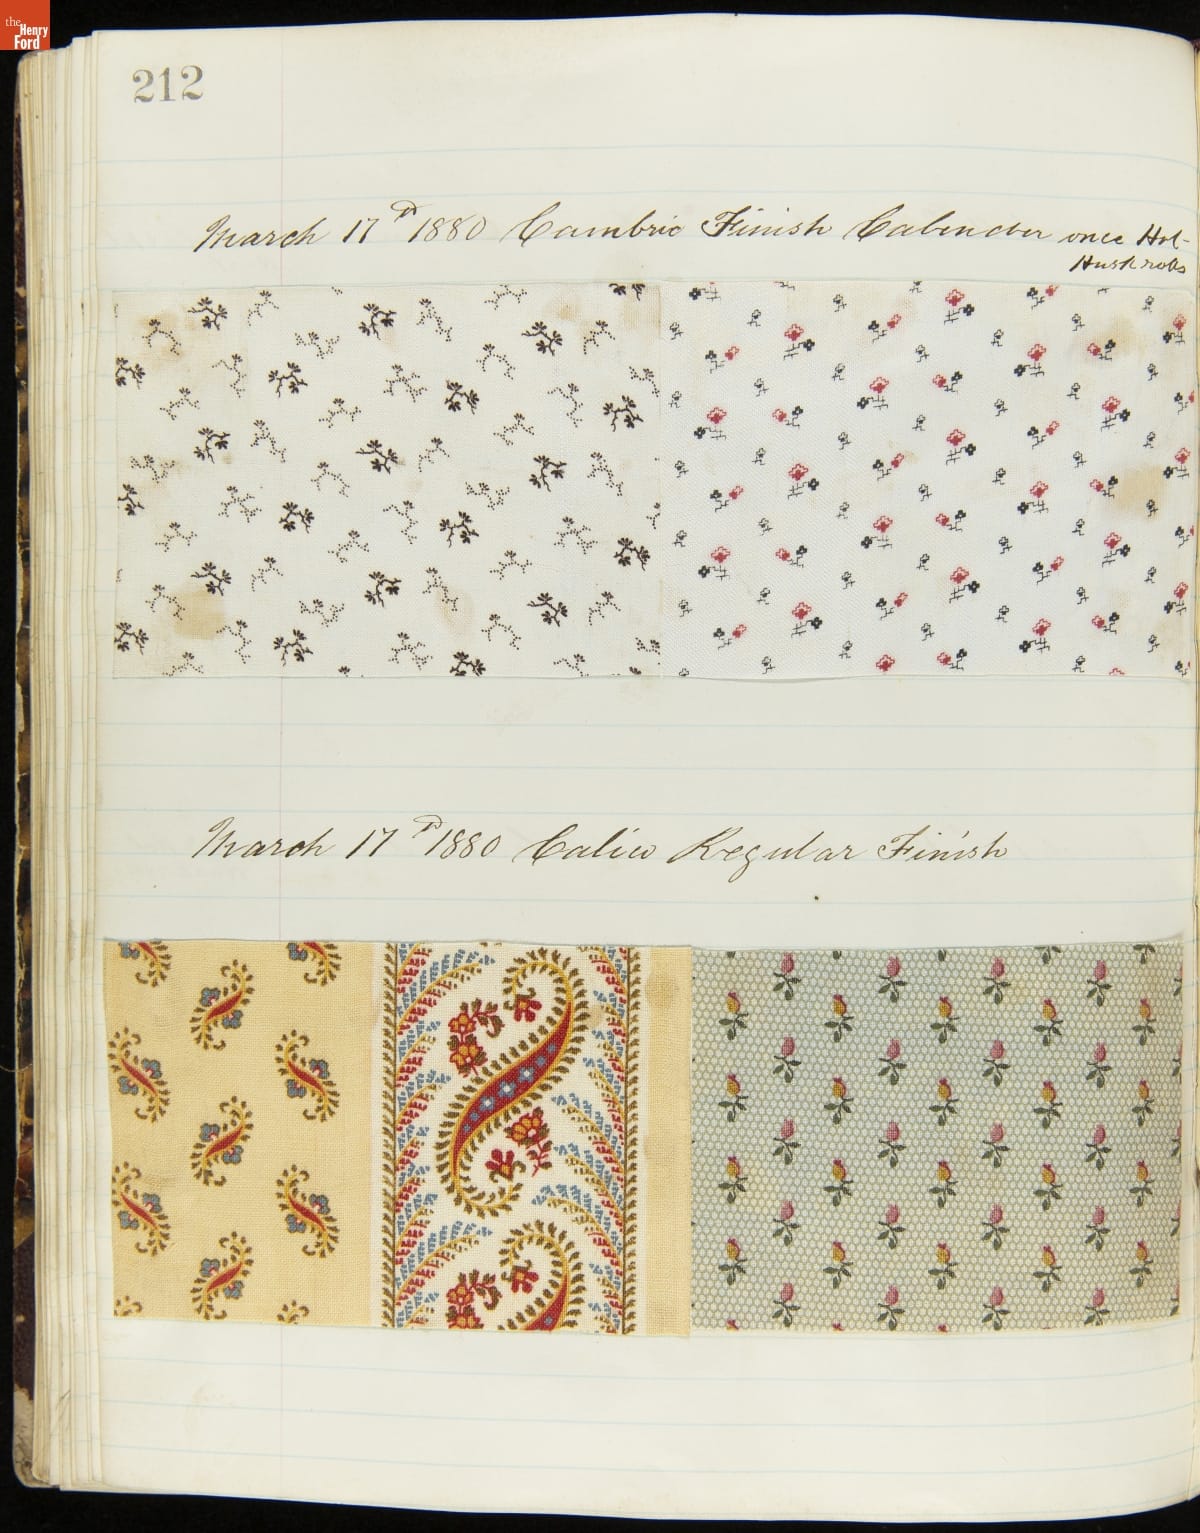 the
Henry
Ford
212
March 17th 1880 Cambric Finish Calender once Hot
Husk rolls
March 17th 1880 Calico Regular Finish